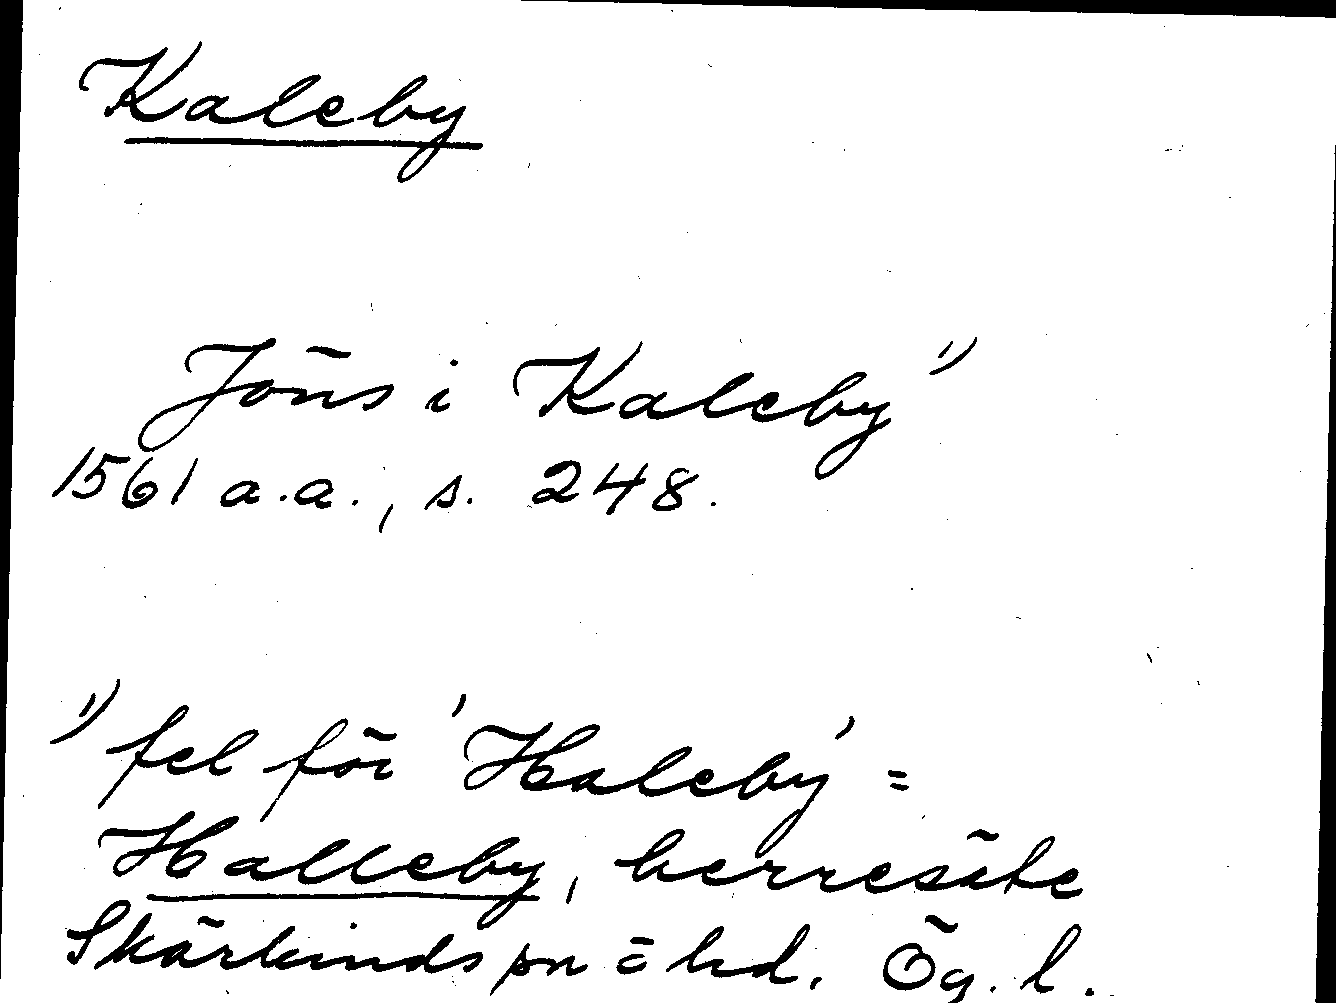 Kaleby
Jöns i Kaleby 1)
1561 a.a., s. 248.
1) fel för 'Haleby' =
Halleby, herresäte
Skärkinds sn o hd. Ög. l.